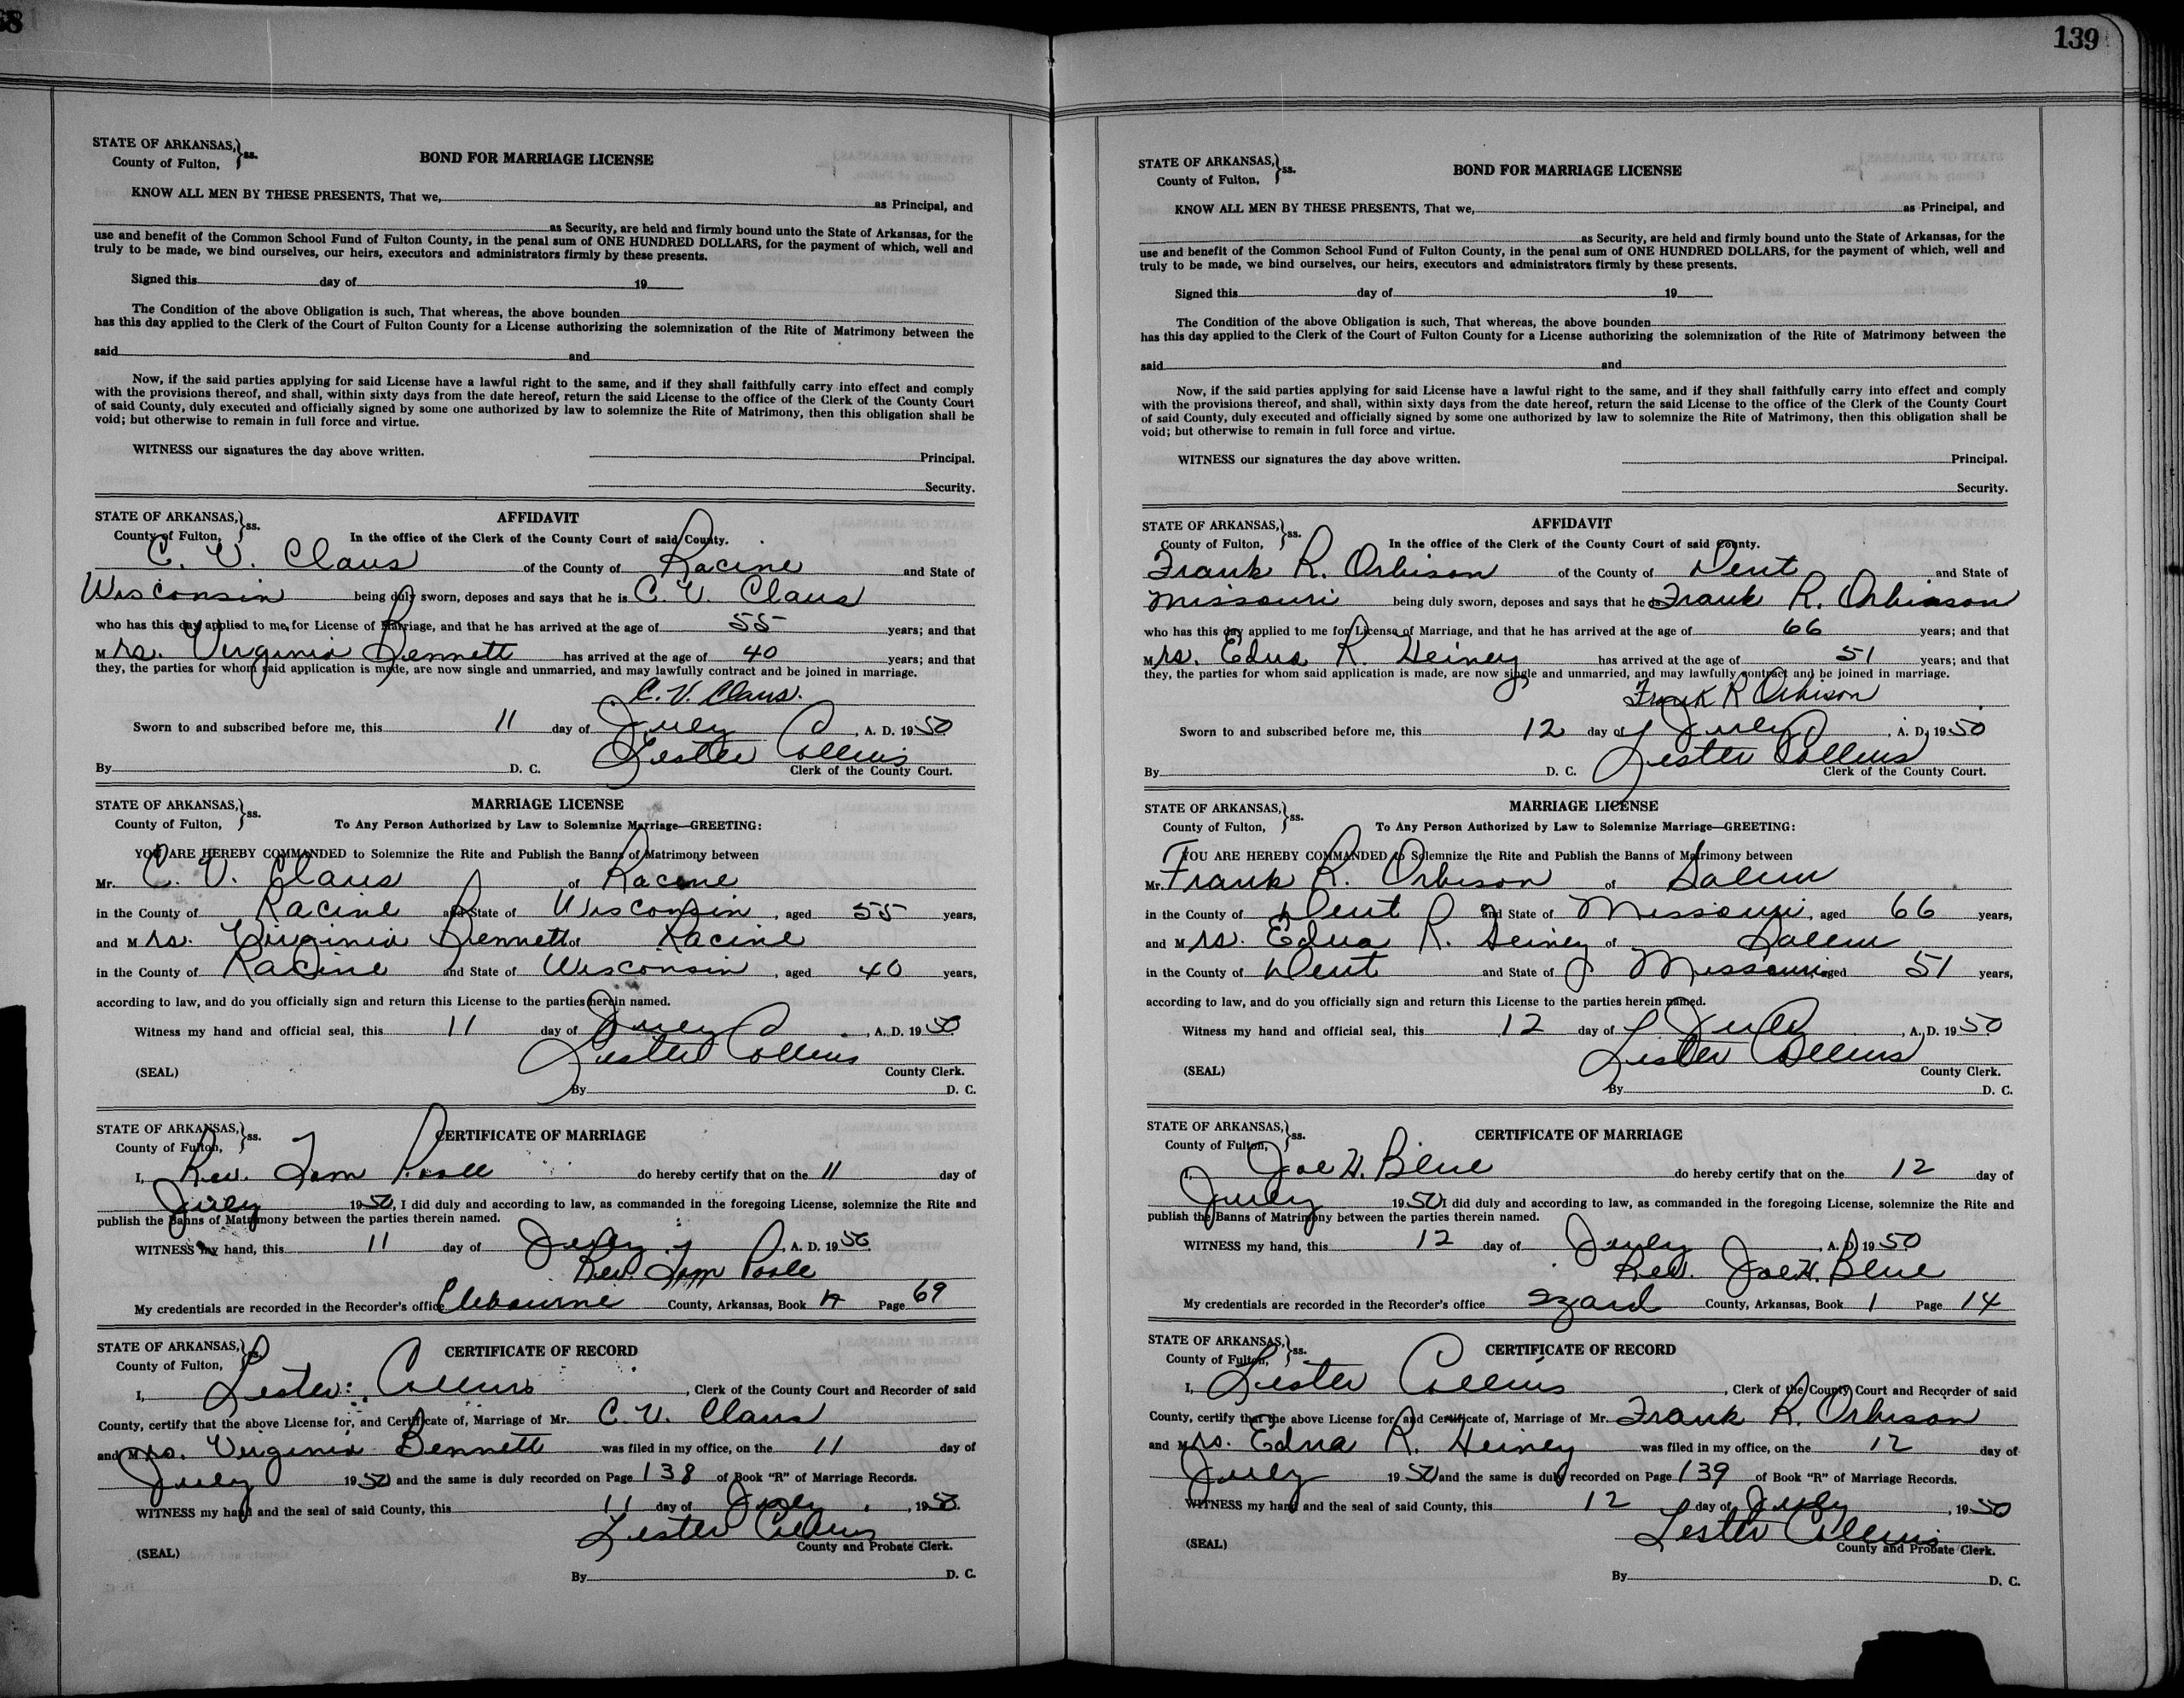 STATE OF ARKANSAS, } ss.
County of Fulton,
BOND FOR MARRIAGE LICENSE
KNOW ALL MEN BY THESE PRESENTS, That we, as Principal, and
as Security, are held and firmly bound unto the State of Arkansas, for the
use and benefit of the Common School Fund of Fulton County, in the penal sum of ONE HUNDRED DOLLARS, for the payment of which, well and
truly to be made, we bind ourselves, our heirs, executors and administrators firmly by these presents.
Signed this day of 19
The Condition of the above Obligation is such, That whereas, the above bounden
has this day applied to the Clerk of the Court of Fulton County for a License authorizing the solemnization of the Rite of Matrimony between the
said and
Now, if the said parties applying for said License have a lawful right to the same, and if they shall faithfully carry into effect and comply
with the provisions thereof, and shall, within sixty days from the date hereof, return the said License to the office of the Clerk of the County Court
of said County, duly executed and officially signed by some one authorized by law to solemnize the Rite of Matrimony, then this obligation shall be
void; but otherwise to remain in full force and virtue.
WITNESS our signatures the day above written. Principal.
Security.
STATE OF ARKANSAS, } ss.
County of Fulton,
AFFIDAVIT
In the office of the Clerk of the County Court of said County.
C. V. Claus of the County of Racine and State of
Wisconsin being duly sworn, deposes and says that he is C. V. Claus
who has this day applied to me for License of Marriage, and that he has arrived at the age of 55 years; and that
Mrs. Virginia Bennett has arrived at the age of 40 years; and that
they, the parties for whom said application is made, are now single and unmarried, and may lawfully contract and be joined in marriage.
C. V. Claus.
Sworn to and subscribed before me, this 11 day of July, A. D. 1950
Lester Collins
By D. C. Clerk of the County Court.
STATE OF ARKANSAS, } ss.
County of Fulton,
MARRIAGE LICENSE
To Any Person Authorized by Law to Solemnize Marriage—GREETING:
YOU ARE HEREBY COMMANDED to Solemnize the Rite and Publish the Banns of Matrimony between
Mr. C. V. Claus of Racine
in the County of Racine and State of Wisconsin, aged 55 years,
and Mrs. Virginia Bennett of Racine
in the County of Racine and State of Wisconsin, aged 40 years,
according to law, and do you officially sign and return this License to the parties herein named.
Witness my hand and official seal, this 11 day of July, A. D. 1950
Lester Collins
(SEAL) County Clerk.
By D. C.
STATE OF ARKANSAS, } ss.
County of Fulton,
CERTIFICATE OF MARRIAGE
I, Rev. Tom Poole do hereby certify that on the 11 day of
July 1950, I did duly and according to law, as commanded in the foregoing License, solemnize the Rite and
publish the Banns of Matrimony between the parties therein named.
WITNESS my hand, this 11 day of July, A. D. 1950.
Rev. Tom Poole
My credentials are recorded in the Recorder's office Clebourne County, Arkansas, Book A Page 69
STATE OF ARKANSAS, } ss.
County of Fulton,
CERTIFICATE OF RECORD
I, Lester Collins, Clerk of the County Court and Recorder of said
County, certify that the above License for, and Certificate of, Marriage of Mr. C. V. Claus
and Mrs. Virginia Bennett was filed in my office, on the 11 day of
July 1950 and the same is duly recorded on Page 138 of Book "R" of Marriage Records.
WITNESS my hand and the seal of said County, this 11 day of July, 1950.
Lester Collins
(SEAL) County and Probate Clerk.
By D. C.
139
STATE OF ARKANSAS, } ss.
County of Fulton,
BOND FOR MARRIAGE LICENSE
KNOW ALL MEN BY THESE PRESENTS, That we, as Principal, and
as Security, are held and firmly bound unto the State of Arkansas, for the
use and benefit of the Common School Fund of Fulton County, in the penal sum of ONE HUNDRED DOLLARS, for the payment of which, well and
truly to be made, we bind ourselves, our heirs, executors and administrators firmly by these presents.
Signed this day of 19
The Condition of the above Obligation is such, That whereas, the above bounden
has this day applied to the Clerk of the Court of Fulton County for a License authorizing the solemnization of the Rite of Matrimony between the
said and
Now, if the said parties applying for said License have a lawful right to the same, and if they shall faithfully carry into effect and comply
with the provisions thereof, and shall, within sixty days from the date hereof, return the said License to the office of the Clerk of the County Court
of said County, duly executed and officially signed by some one authorized by law to solemnize the Rite of Matrimony, then this obligation shall be
void; but otherwise to remain in full force and virtue.
WITNESS our signatures the day above written. Principal.
Security.
STATE OF ARKANSAS, } ss.
County of Fulton,
AFFIDAVIT
In the office of the Clerk of the County Court of said County.
Frank R. Orbison of the County of Dent and State of
Missouri being duly sworn, deposes and says that he is Frank R. Orbinson
who has this day applied to me for License of Marriage, and that he has arrived at the age of 66 years; and that
Mrs. Edna R. Heiney has arrived at the age of 51 years; and that
they, the parties for whom said application is made, are now single and unmarried, and may lawfully contract and be joined in marriage.
Frank R Orbison
Sworn to and subscribed before me, this 12 day of July, A. D. 1950
Lester Collins
By D. C. Clerk of the County Court.
STATE OF ARKANSAS, } ss.
County of Fulton,
MARRIAGE LICENSE
To Any Person Authorized by Law to Solemnize Marriage—GREETING:
YOU ARE HEREBY COMMANDED to Solemnize the Rite and Publish the Banns of Matrimony between
Mr. Frank R. Orbison of Salem
in the County of Dent and State of Missouri, aged 66 years,
and Mrs. Edna R. Heiney of Salem
in the County of Dent and State of Missouri, aged 51 years,
according to law, and do you officially sign and return this License to the parties herein named.
Witness my hand and official seal, this 12 day of July, A. D. 1950
Lester Collins
(SEAL) County Clerk.
By D. C.
STATE OF ARKANSAS, } ss.
County of Fulton,
CERTIFICATE OF MARRIAGE
I, Joe H. Blue do hereby certify that on the 12 day of
July 1950 I did duly and according to law, as commanded in the foregoing License, solemnize the Rite and
publish the Banns of Matrimony between the parties therein named.
WITNESS my hand, this 12 day of July, A. D. 1950
Rev. Joe H. Blue
My credentials are recorded in the Recorder's office Izard County, Arkansas, Book 1 Page 14
STATE OF ARKANSAS, } ss.
County of Fulton,
CERTIFICATE OF RECORD
I, Lester Collins, Clerk of the County Court and Recorder of said
County, certify that the above License for, and Certificate of, Marriage of Mr. Frank R. Orbison
and Mrs. Edna R. Heiney was filed in my office, on the 12 day of
July 1950 and the same is duly recorded on Page 139 of Book "R" of Marriage Records.
WITNESS my hand and the seal of said County, this 12 day of July, 1950
Lester Collins
(SEAL) County and Probate Clerk.
By D. C.